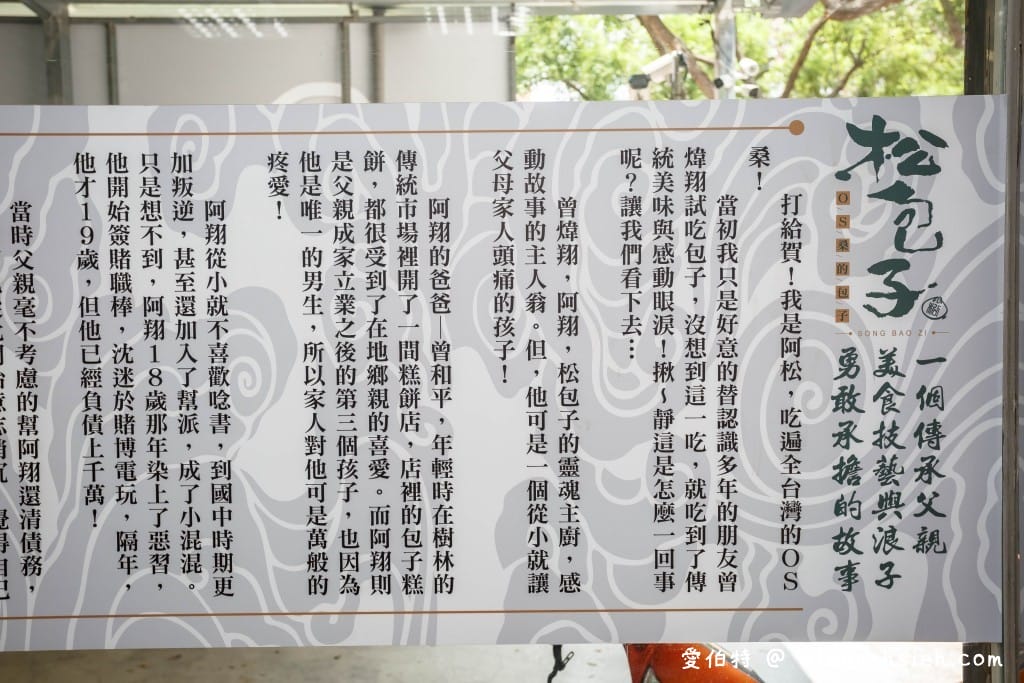 松包子
OS桑的包子
SONG BAO ZI
一個傳承父親
美食技藝與浪子
勇敢承擔的故事
打給賀！我是阿松，吃遍全台灣的OS
桑！
當初我只是好意的替認識多年的朋友曾
煒翔試吃包子，沒想到這一吃，就吃到了傳
統美味與感動眼淚！揪～靜這是怎麼一回事
呢？讓我們看下去…
曾煒翔，阿翔，松包子的靈魂主廚，感
動故事的主人翁。但，他可是一個從小就讓
父母家人頭痛的孩子！
阿翔的爸爸—曾和平，年輕時在樹林的
傳統市場裡開了一間糕餅店，店裡的包子糕
餅，都很受到了在地鄉親的喜愛。而阿翔則
是父親成家立業之後的第三個孩子，也因為
他是唯一的男生，所以家人對他可是萬般的
疼愛！
阿翔從小就不喜歡唸書，到國中時期更
加叛逆，甚至還加入了幫派，成了小混混。
只是想不到，阿翔18歲那年染上了惡習，
他開始簽賭職棒，沈迷於賭博電玩，隔年，
他才19歲，但他已經負債上千萬！
當時父親毫不考慮的幫阿翔還清債務，
覺得自己
愛伯特 @
.com